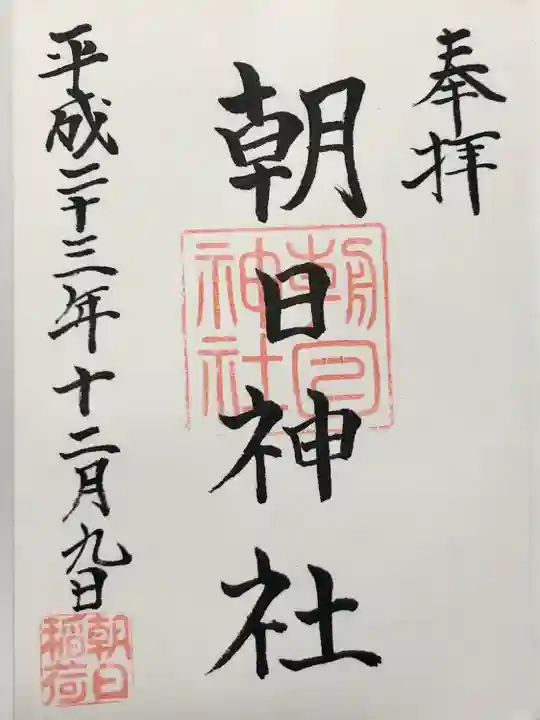 奉拝
朝日神社
朝日
神社
平成二十三年十二月九日
朝日
稲荷